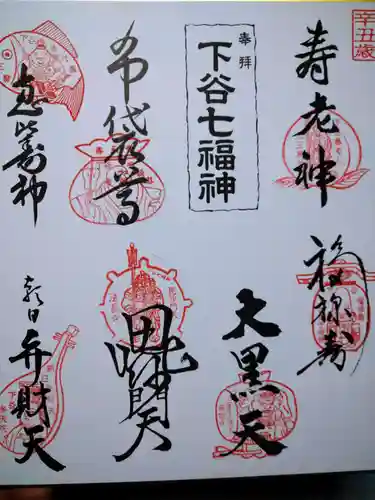 辛丑歳
奉拝
下谷七福神
寿老神
布袋尊
恵比寿神
福禄寿
大黒天
毘沙門天
朝日
弁財天